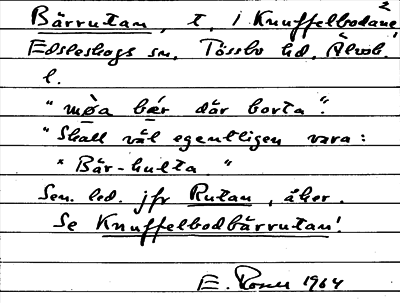 Bärrutan, t. i Knuffelbodane²,
Edsleskogs sn, Tössbo hd, Älvsb.
l.
"møa bær där borta".
"Skall väl egentligen vara:
"Bär-hulta."
Sen. led. jfr Rutan, åker.
Se Knuffelbodbärrutan!
E. Rosell 1964